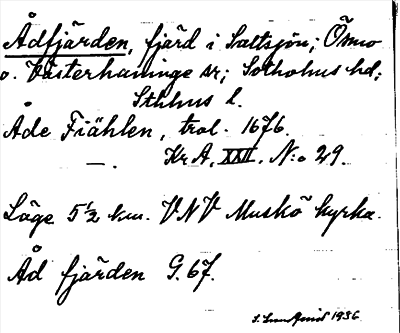 Ådfjärden, fjärd i Saltsjön; Ösmo
o. Västerhaninge sr; Sotholms hd;
Sthlms l.
Åde Fiählen, trol. 1676.
— . Kr A, XXII. N:o 29.
Läge 5½ km. VNV Muskö kyrka.
Åd fjärden G. 67.
1936